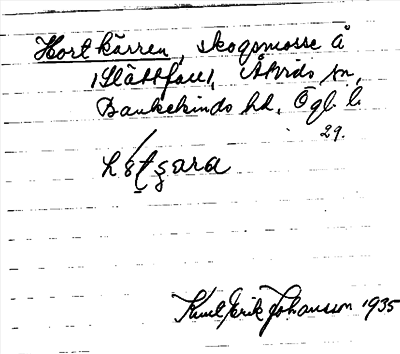 Hortkärren, skogsmosse å
Slättfall, Åtvids sn,
Bankekinds hd. Ögl. l.
29.
Knut Erik Johansson 1935